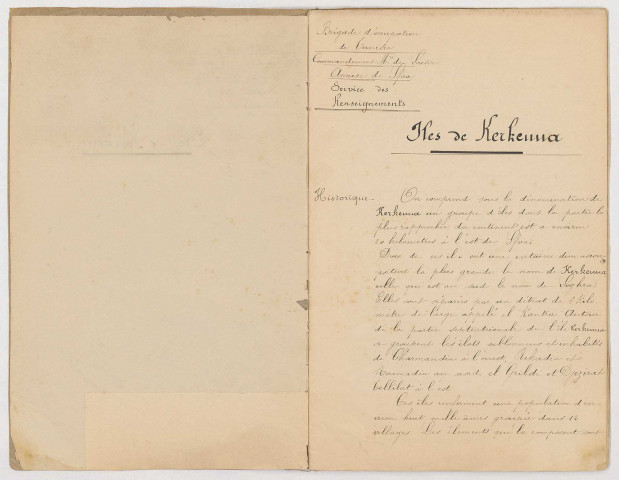 Brigade d'occupation
de Tunisie
Commandement Mre de Sousse
Annexe de Sfax
Service des
Renseignements
Iles de Kerkenna
Historique - On comprend sous la dénomination de
Kerkenna un groupe d'îles dont la partie la
plus rapprochée du continent est à environ
20 kilomètres à l'est de Sfax.
Deux de ces îles ont une certaine
portant la plus grande le nom de Kerkenna
celle qui est au sud le nom de
Elles sont séparées par un détroit de 1 kilo
mètre de large appelé el Kantra. Autour
de la partie septentrionale de l'île Kerkenna
se groupent les îlots sablonneux et inhabités
de Charmandia à l'ouest,
au nord el Gremdi et Djezirat
à l'est
Ces îles renferment une population d'en-
viron huit mille âmes groupée dans 12
villages. Les éléments qui la composent sont